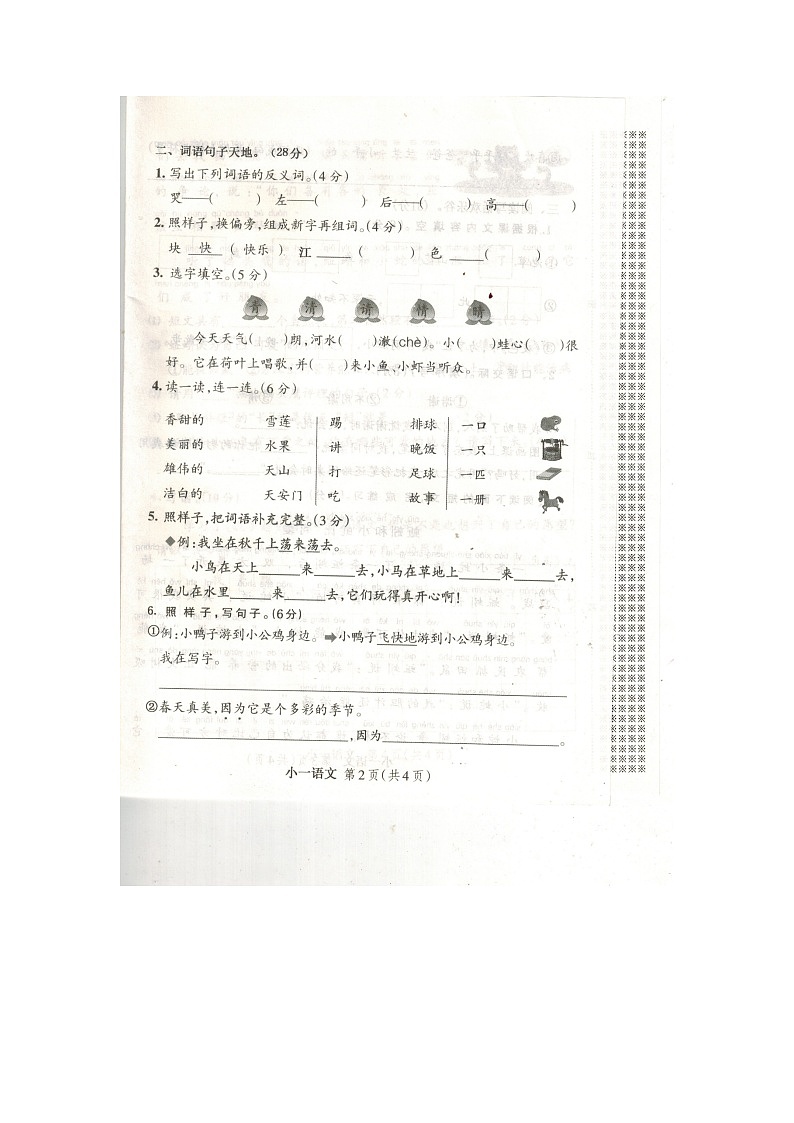 二、词语句子天地。(28分)
1.写出下列词语的反义词。(4分)
哭——( ) 左——( ) 后——( ) 高——( )
2.照样子,换偏旁,组成新字再组词。(4分)
块 快 ( 快乐 ) 江 _____ ( ) 色 _____ ( )
3. 选字填空。(5分)
青 清 请 情 晴
今天天气( )朗,河水( )澈(chè)。小( )蛙心( )很
好。它在荷叶上唱歌,并( )来小鱼、小虾当听众。
4.读一读,连一连。(6分)
香甜的 雪莲 踢 排球 一口
美丽的 水果 讲 晚饭 一只
雄伟的 天山 打 足球 一匹
洁白的 天安门 吃 故事 一册
5. 照样子,把词语补充完整。(3分)
◆例:我坐在秋千上荡来荡去。
小鸟在天上_____来_____去,小马在草地上_____来_____去,
鱼儿在水里_____来_____去,它们玩得真开心啊!
6. 照样子,写句子。(6分)
①例:小鸭子游到小公鸡身边。➡小鸭子飞快地游到小公鸡身边。
我在写字。
②春天真美,因为它是个多彩的季节。
_____,因为_____。
小一语文 第2页(共4页)